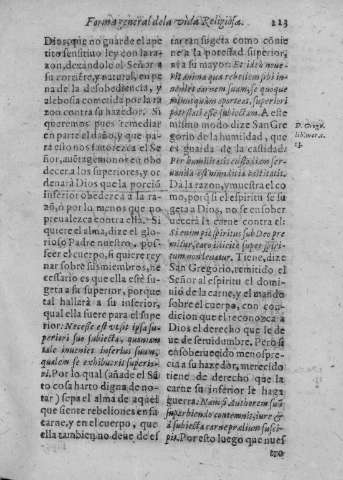 Forma general de la vida Religiosa. 223
Dios, que no guarde el ape
tito sensitivo ley con la ra
zon, dexandole el Señor a
su corriẽte, y natural, en pe
na de la desobediencia, y
aleuosia cometida por la ra
zon contra su hazedor. Si
queremos pues remediar
en parte el daño, y que pa
ra ello nos fauorezca el Se
ñor, auẽtagemonos en obe
decer a los superiores, y or
denarà Dios que la porciõ
inferior obedezca a la ra
zõ, o por lo menos que no
preualezca contra ella. Si
quiere el alma, dize el glo
rioso Padre nuestro, pos-
seer el cuerpo, si quiere rey
nar sobre sus miembros, ne
cessario es que ella estè su-
geta a su superior, porque
tal hallerà a su inferior,
qual ella fuere para el supe
rior. Necesse est vt sit ipsa su-
periori suo subiecta, quoniam
tale inueniet inferius suum,
qualem se exhibuerit superio-
ri. Por lo qual (añade el Sã
to cosa harto digna de no-
tar) sepa el alma de aquel
que siente rebeliones en su
carne, y en el cuerpo, que
ella tambien no deue de es
tar tan sugeta como cõuie
ne a la potestad superior,
y a su mayor. Et ideò noue-
rit anima qua rebellem sibi in-
uenit carnem suam, se quoque
minus quàm oporteat, superiori
potestati esse subiectam. A este
mismo modo dize San Gre
gorio de la humildad, que
es guarda de la castidad:
Per humilitatis custodiam ser-
uanda est munditia castitatis.
Dà la razon, y muestra el co
mo, porq̃ si el espiritu se su
geta a Dios, no se ensober
uecerà la carne contra el:
Si enim piè spiritus sub Deo pre
mitur, caro illicitè super spiri-
tum non leuatur. Tiene, dize
San Gregorio, remitido el
Señor al espiritu el domi-
nio de la carne, y el mando
sobre el cuerpo, con con-
dicion que el reconozca a
Dios el derecho que se de
ue de seruidumbre. Pero si
ensoberuecido menospre-
cia a su hazedor, merecido
tiene de derecho que la
carne su inferior le haga
guerra: Nam si Authorem suũ
superbiendo contemnit, iure &
à subiecta carne prælium susci-
pit. Por esto luego que nues
tro
D. Greg.
lib.